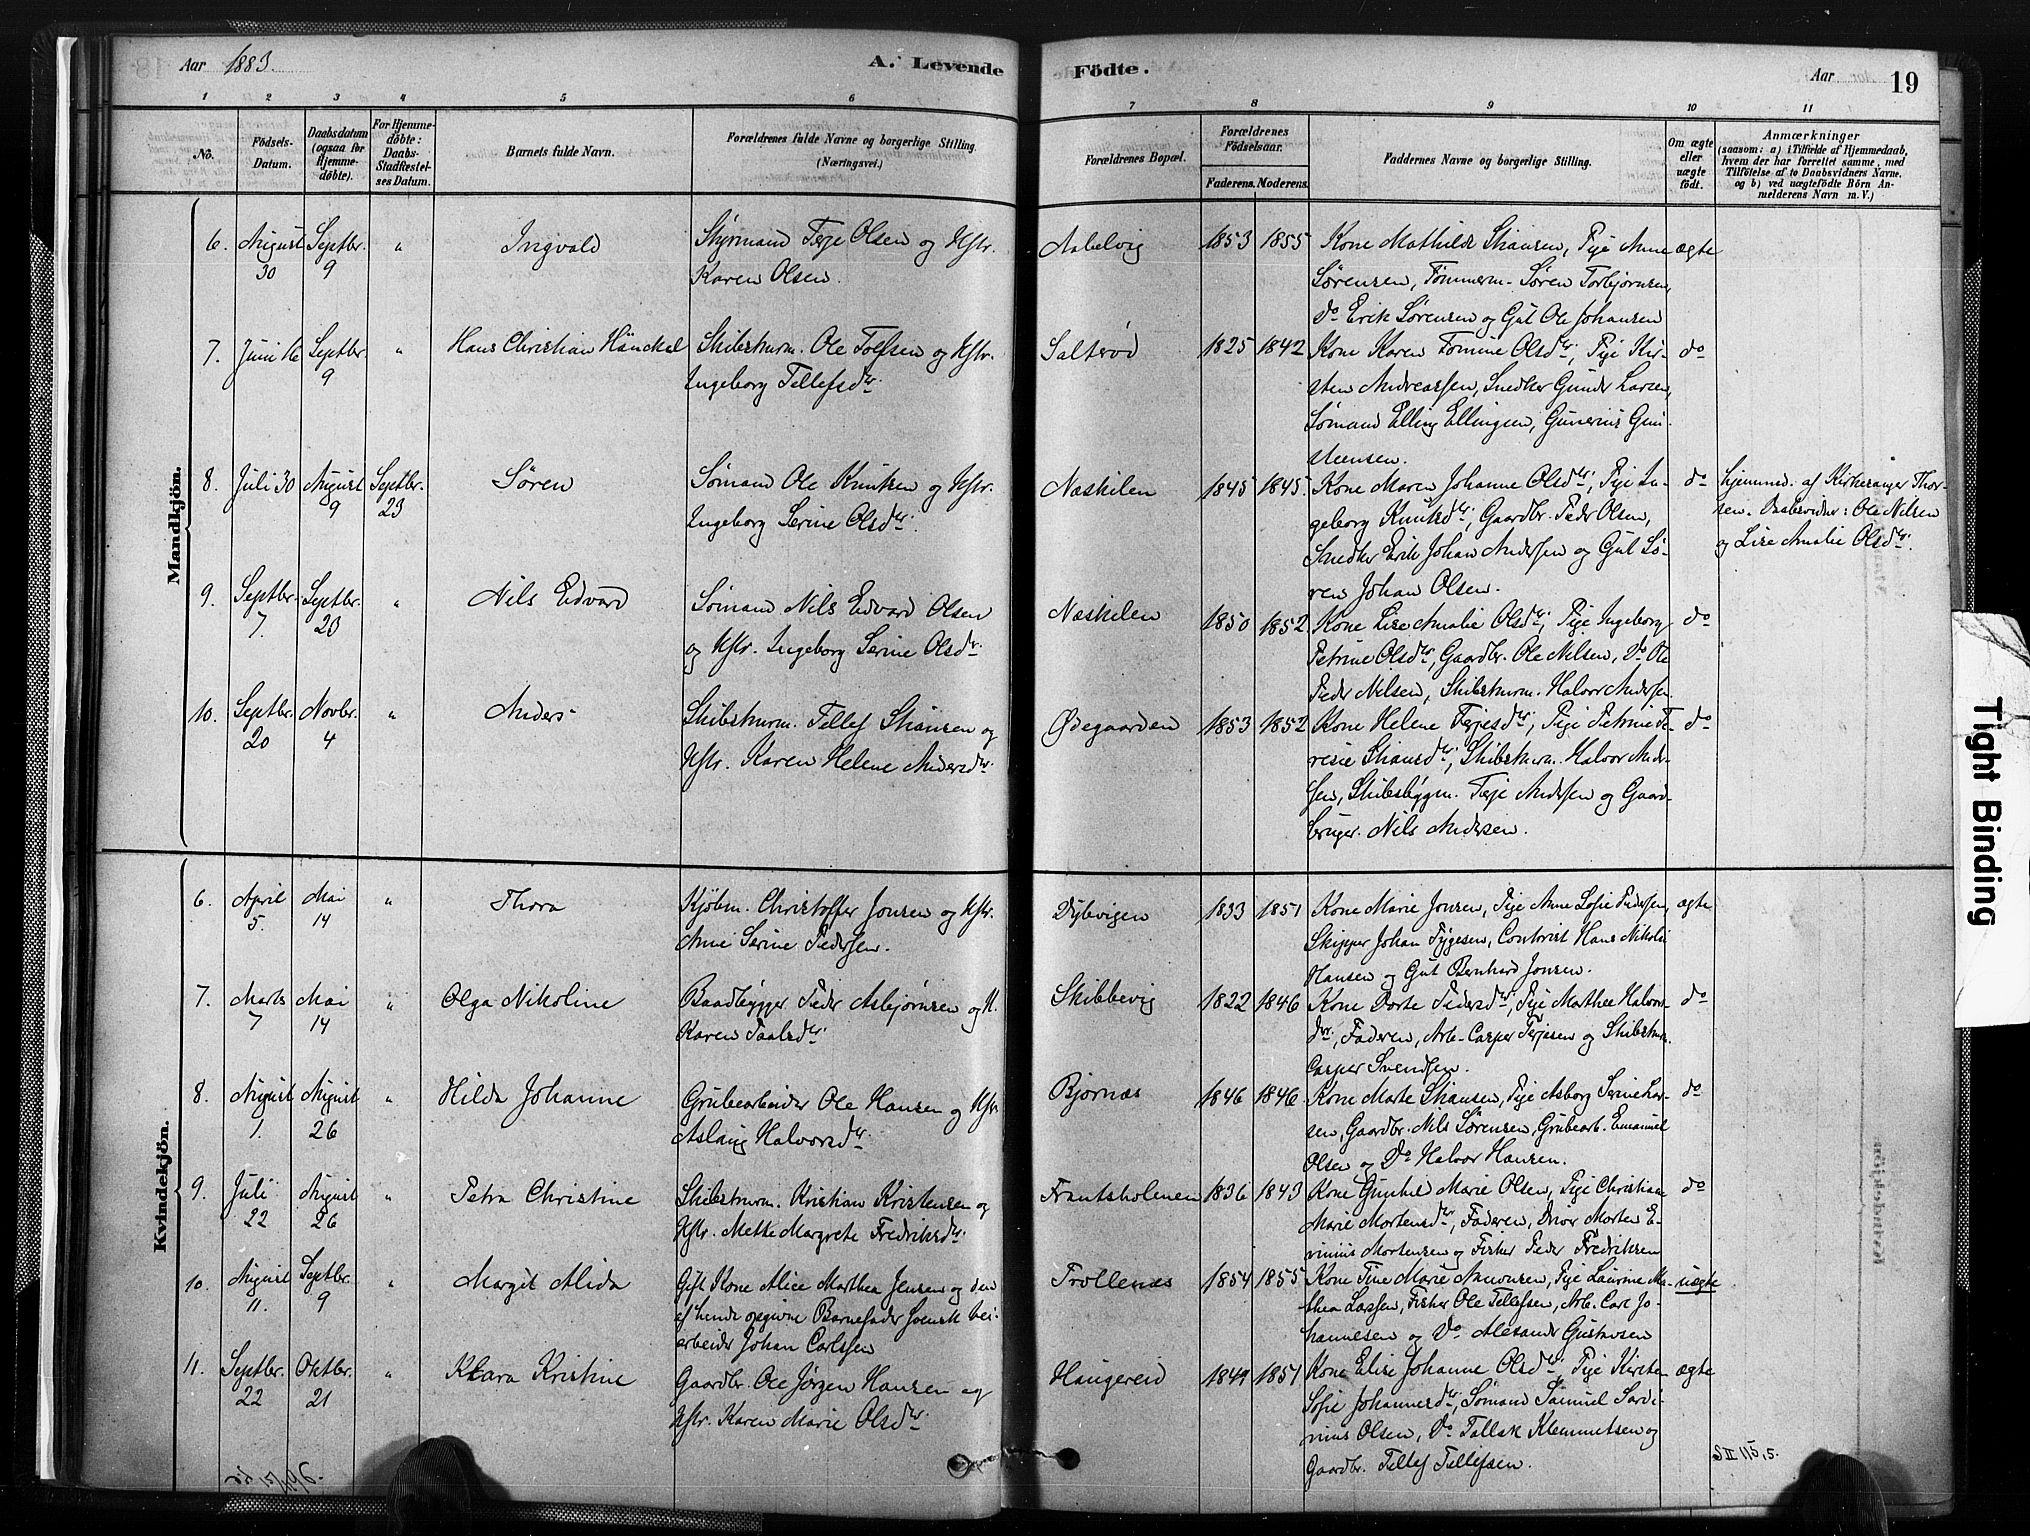 Aar 1883.
A. Levende
Födte.
Aar
19
1 2 3 4 5 6 7 8 9 10 11
No.
Födsels-
Datum.
Daabsdatum
(ogsaa for
Hjemme-
döbte).
For Hjemme-
döbte:
Daabs-
Stadfæstel-
ses Datum.
Barnets fulde Navn.
Forældrenes fulde Navne og borgerlige Stilling.
(Næringsvei.)
Forældrenes Bopæl.
Forældrenes
Födselsaar.
Faderens. Moderens.
Faddernes Navne og borgerlige Stilling.
Om ægte
eller
uægte
födt.
Anmærkninger
(saasom: a) i Tilfælde af Hjemmedaab,
hvem der har forrettet samme, med
Tilföielse af to Daabsvidners Navne.
og b) ved uægtefödte Börn An-
melderens Navn m. V.)
Mandkjön.
6. August 30 Septbr. 9 " Ingvald
Styrmand Terje Olsen og Hstr.
Karen Olsen.
Aabelvig 1853 1855
Kone Mathilde Stiansen, Pige Anne
Sørensen, Tømmerm. Søren Torbjørnsen,
Do Erik Sørensen og Gut Ole Johansen
ægte
7. Juni 16 Septbr. 9 " Hans Christian Hänckel
Skibsturm. Ole Toefsen og Hstr.
Ingeborg Tellefsdtr.
Salterød 1825 1842
Kone Karen Tomine Olsdtr, Pige Kir-
sten Andreassen, Snedker Gunder Larsen,
Sømand Elling Ellingsen, Gunerius Gun-
steensen.
do
8. Juli 30 August 9 Septbr. 23 Søren
Sømand Ole Knutsen og Hstr.
Ingeborg Serine Olsdtr.
Næskilen 1845 1845.
Kone Maren Johanne Olsdtr, Pige In-
geborg Knutsdtr, Gaardbr. Peder Olsen,
Snedker Erik Johan Andersen og Gut Sø-
ren Johan Olsen.
do
hjemmed. af Kirkesanger Thor-
sen. Daabsvidner: Ole Nilsen
og Lise Amalie Olsdtr.
9. Septbr. 7. Septbr. 23 " Nils Edvard
Sømand Nils Edvard Olsen
og Hstr. Ingeborg Serine Olsdtr.
Næskilen 1850 1852
Kone Lise Amalie Olsdtr, Pige Ingeborg
Petrine Olsdtr, Gaardbr. Ole Nilsen, Do Ole
Peder Nilsen, Skibsturm. Halvor Andersen.
do
10. Septbr. 20 Novbr. 4 " Anders
Skibsturm. Tellef Stiansen og
Hstr. Karen Helene Andersdtr.
Ødegaarden 1853 1852
Kone Helene Terjesdtr, Pige Petrine Te-
resie Stiansdtr, Skibsturm. Halvor Ander-
sen, Skibsbyggm. Terje Andersen og Gaard-
bruger. Nils Andersen.
do
Kvindekjön.
6. April 5. Mai 14 " Thora
Kjøbm. Christoffer Jonsen og Hstr.
Anne Serine Pedersen.
Dybvigen 1833 1851
Kone Marie Jonsen, Pige Anne Sofie Pedersen,
Skipper Johan Tygesen, Contorist Hans Nikolai
Hansen og Gut Bernhard Jonsen.
ægte
7. Marts 7 Mai 14 " Olga Nikoline
Baadbygger Peder Asbjørnsen og H.
Karen Paalsdtr.
Skibbevig 1822 1846
Kone Dorte Pedersdtr, Pige Marthea Halvors-
dtr, Faderen, Arb. Casper Terjesen og Skibsturm.
Casper Svendsen.
do
8. August 1. August 26 " Hilda Johanne
Grubearbeider Ole Hansen og Hstr.
Aslaug Halvorsdtr.
Bjørnæs 1846 1846
Kone Marte Stiansen, Pige Asborg Serine Lar-
sen, Gaardbr. Nils Sørensen, Grubearb. Emanuel
Olsen og Do Halvor Hansen.
do
9. Juli 22 August 26 " Petra Christine
Skibsturm. Kristian Kristensen og
Hstr. Mette Margrete Fredriksdtr.
Frantsholmen 1836 1843
Kone Gunhil Marie Olsen, Pige Christiane
Marie Mortensdtr, Faderen, Driver Morten E-
rinius Mortensen og Fisker Peder Fredriksen
do
10. August 11. Septbr. 9 " Margit Alida
Gift Kone Alice Marthea Jensen og den
af hende opgivne Barnefader svensk bei-
arbeider Johan Carlssen
Trollenes 1854 1855
Kone Tine Marie Amonsen, Pige Laurine Ma-
thea Larsen, Fisker Ole Tellefsen, Arb. Carl Jo-
hannesen og Do Alexander Gustavsen
uægte
11. Septbr. 22 Oktbr. 21 " Klara Kristine
Gaardbr. Ole Jørgen Hansen og
Hstr. Karen Marie Olsdtr.
Haugereid 1849 1851
Kone Elise Johanne Olsdtr, Pige Kirsten
Sofie Johannesdtr, Sømand Samuel Sardi-
nius Olsen, Do Tallak Klemmetsen og
Gaardbr. Tellef Tellefsen.
ægte
S II 115,5.
Tight Binding